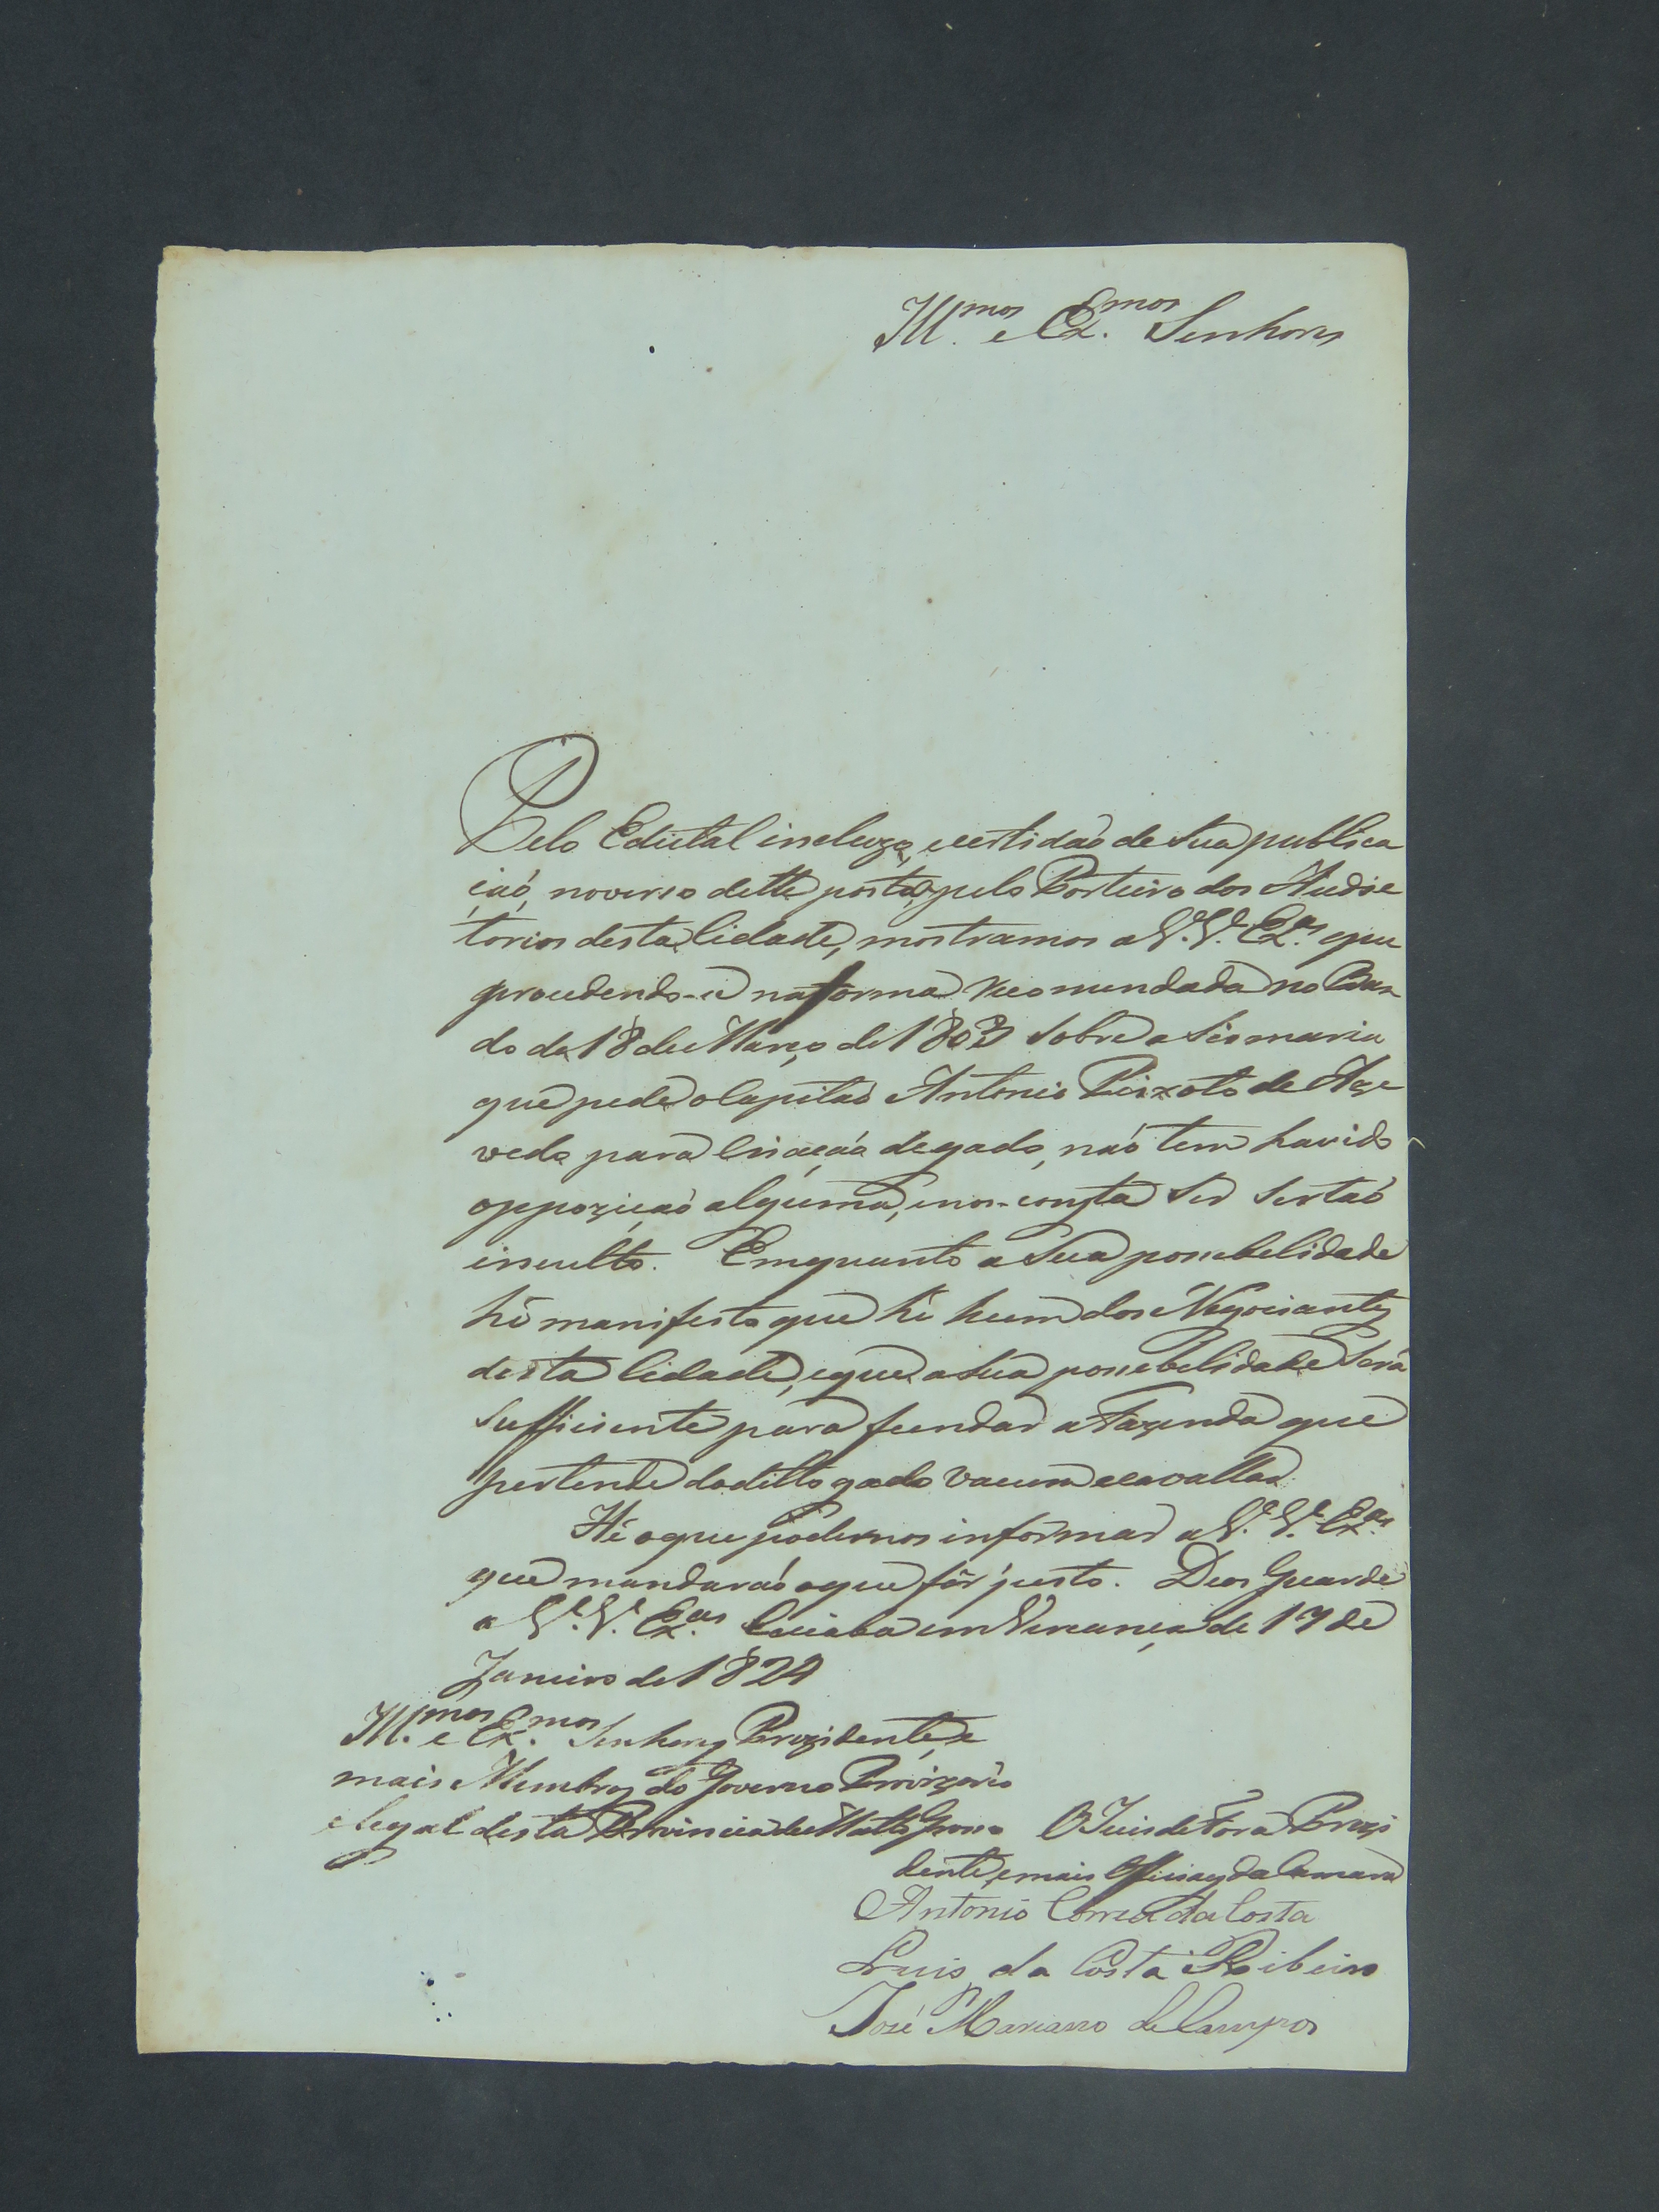 Ill.mos e Ex.mos Senhores
Pelo Edictal incluzo, e certidaõ de sua publica
çaõ, no verso delle posta, pelo Porteiro dos Audie
torios desta Cidade, mostramos a V.V. Ex.as que
procedendo-se na forma recomendada no Ban
do de 18 de Março de 1803 sobre a Sismaria
que pede o Capitaõ Antonio Peixoto de Aze
vedo para Criaçaõ de gado, naõ tem havido
oppoziçaõ alguma, e nos-consta ser Sertaõ
inculto. Emquanto a sua possebelidade
hé manifesto que hé hum dos Negociantes
desta Cidade, e que a sua possebelidade será
sufficiente para fundar a Fazenda que
pertende do ditto gado vacum e cavallar.
Hé o que podemos informar a V.V. Ex.as
que mandaraõ o que fôr justo. Deos Guarde
a V.V. Ex.as Cuiaba em Vereança de 17 de
Janeiro de 1824
Ill.mos e Ex.mos Senhores Prezidente, e
mais Membros do Governo Provizorio
e legal desta Provincia de Matto Grosso
O Juis de Fora Prezi
dente, e mais Officiaes da Camara
Antonio Correa da Costa
Luis da Costa Ribeiro
José Mariano de Campos